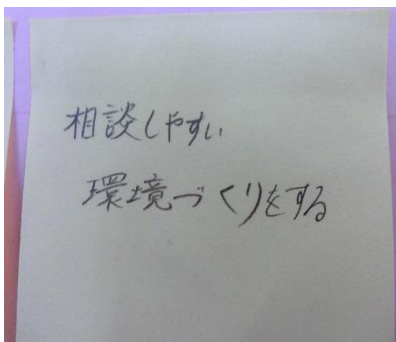 相談しやすい
環境づくりをする